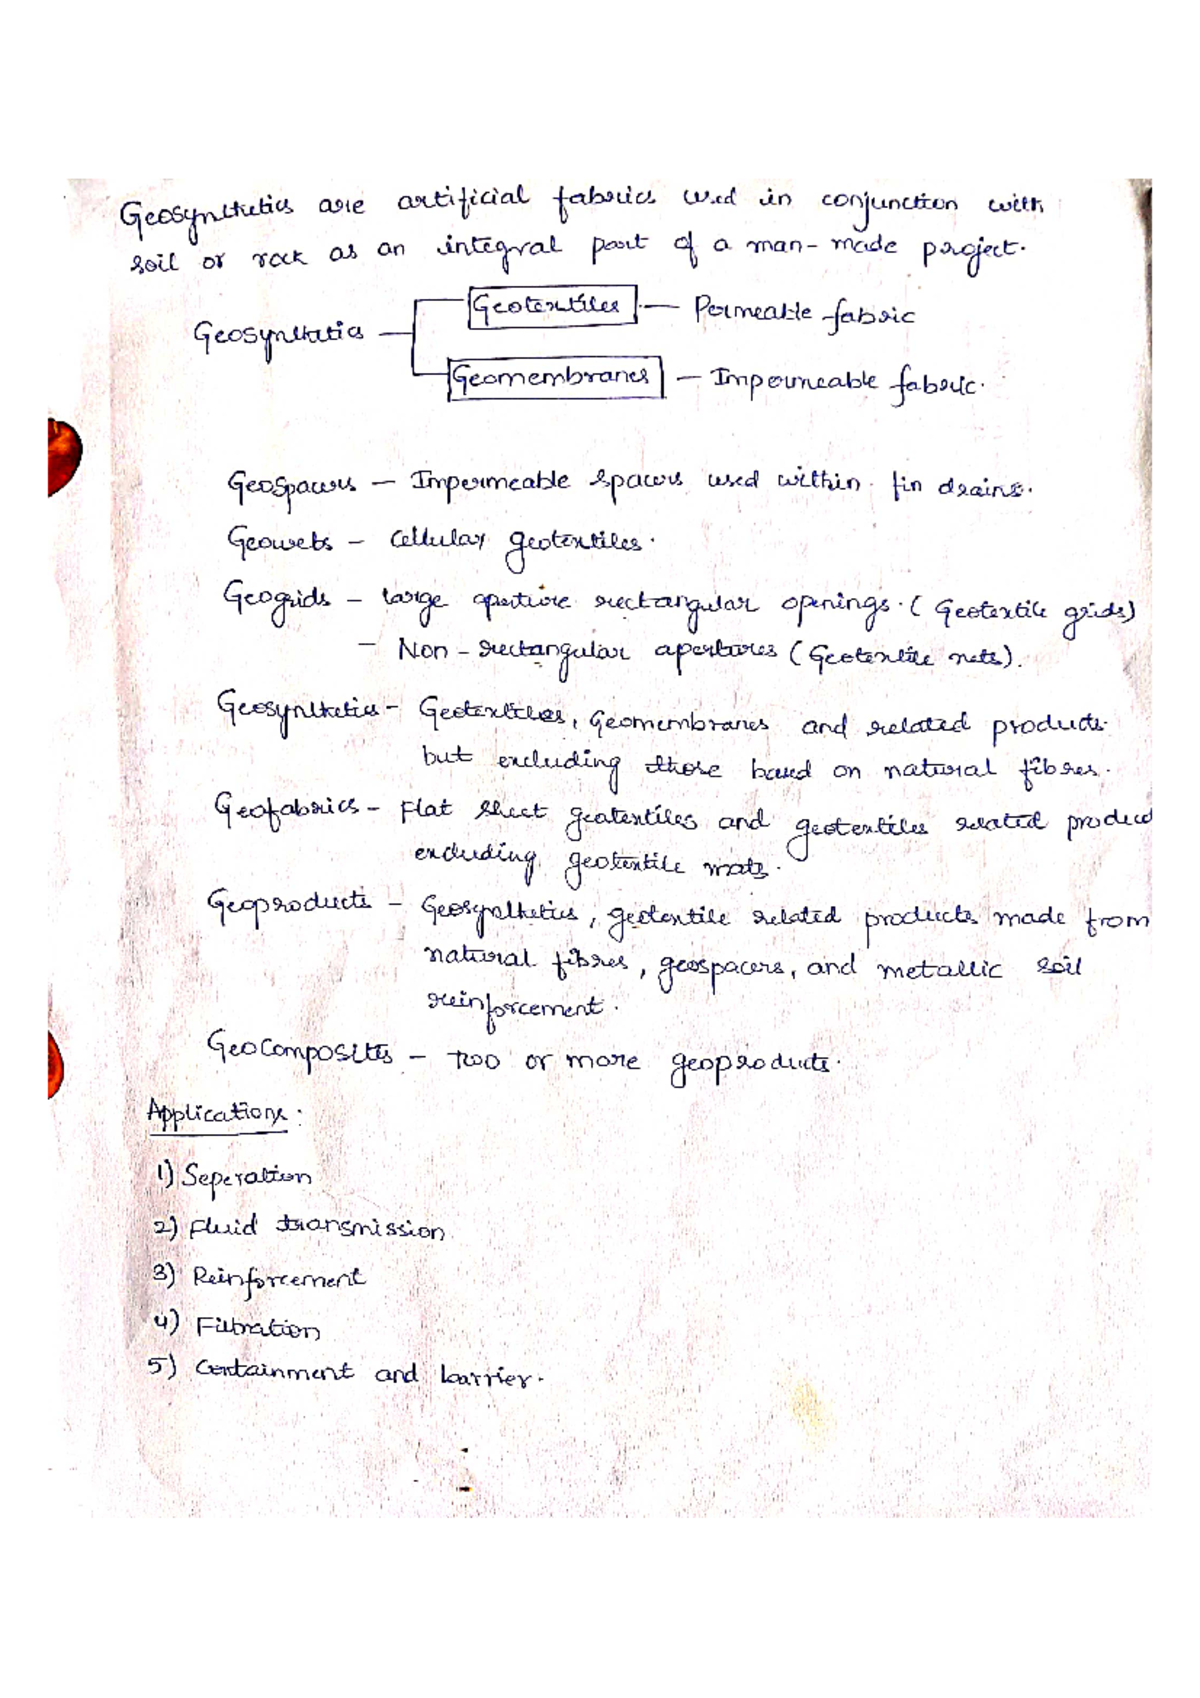 Geosynthetics are artificial fabrics used in conjunction with
soil or rock as an integral part of a man-made project.
Geotextiles — Permeable fabric
Geosynthetics
Geomembranes — Impermeable fabric.
Geospacers — Impermeable spacers used within fin drains.
Geowebs — cellular geotextiles.
Geogrids — large aperture rectangular openings. (Geotextile grids)
— Non-rectangular apertures (Geotextile nets).
Geosynthetics - Geotextiles, Geomembranes and related products
but excluding those based on natural fibres.
Geofabrics - Flat sheet geotextiles and geotextiles related produc
excluding geotextile mats.
Geoproducts - Geosynthetics, geotextile related products made from
natural fibres, geospacers, and metallic soil
reinforcement.
Geocomposites - two or more geoproducts.
Applications:
1) Seperation
2) Fluid transmission
3) Reinforcement
4) Filtration
5) Containment and barrier.